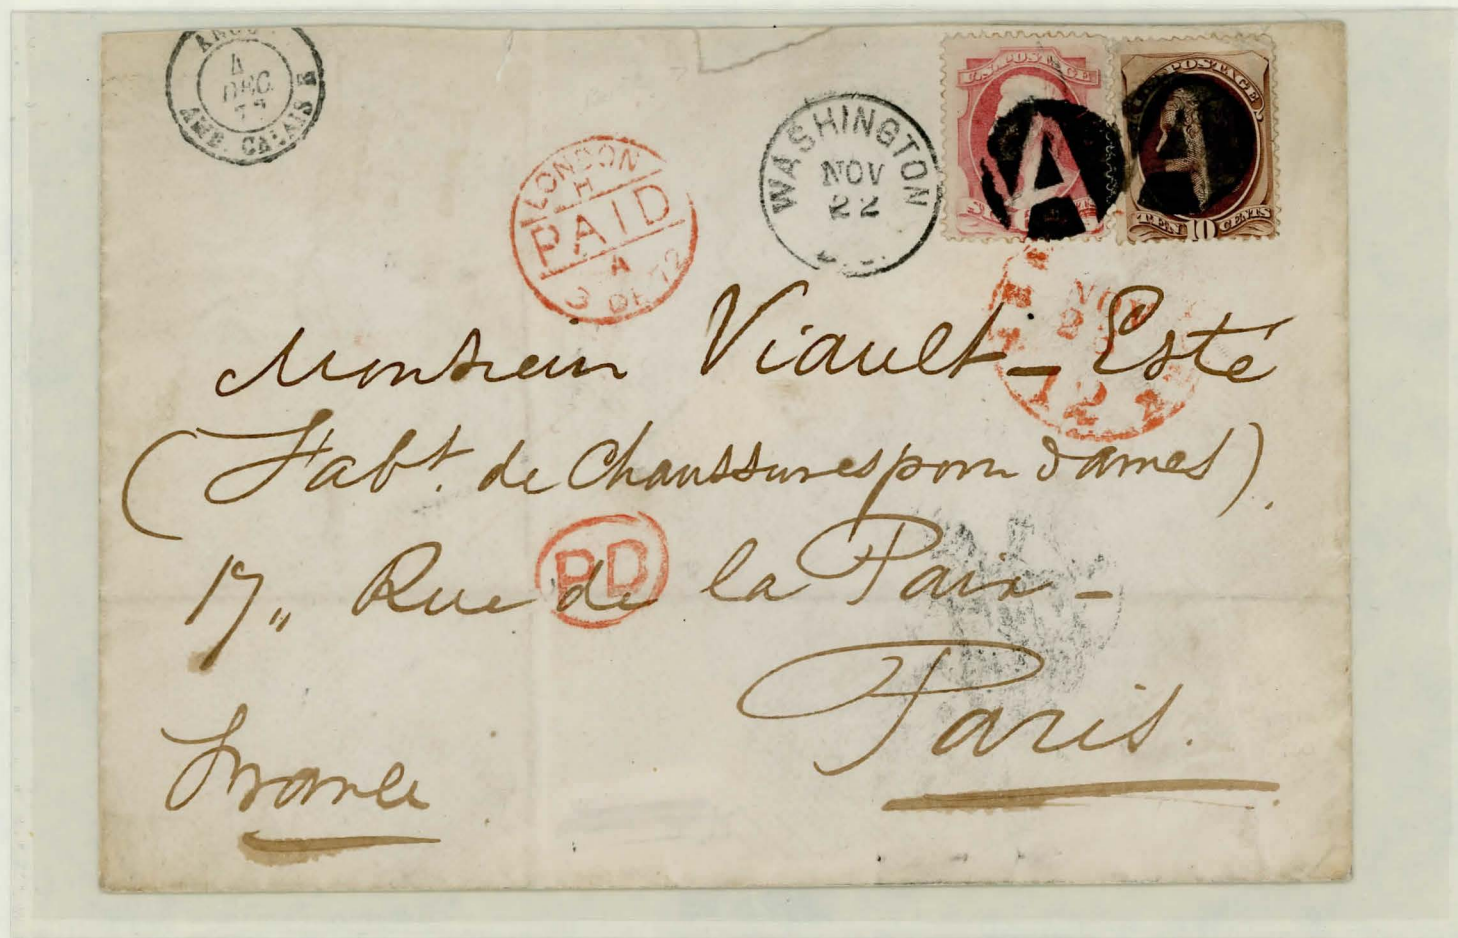 4
DEC.
72
AMB. CALAIS
LONDON
H
PAID
A
3 DE 72
WASHINGTON
NOV
22
U.S. POSTAGE
A
SIX CENTS
POSTAGE
A
TEN 10 CENTS
NOV
12
Monsieur Viault-Esté
(Fabt. de Chaussures pour dames).
17,, Rue de la Paix -
PD
Paris.
France